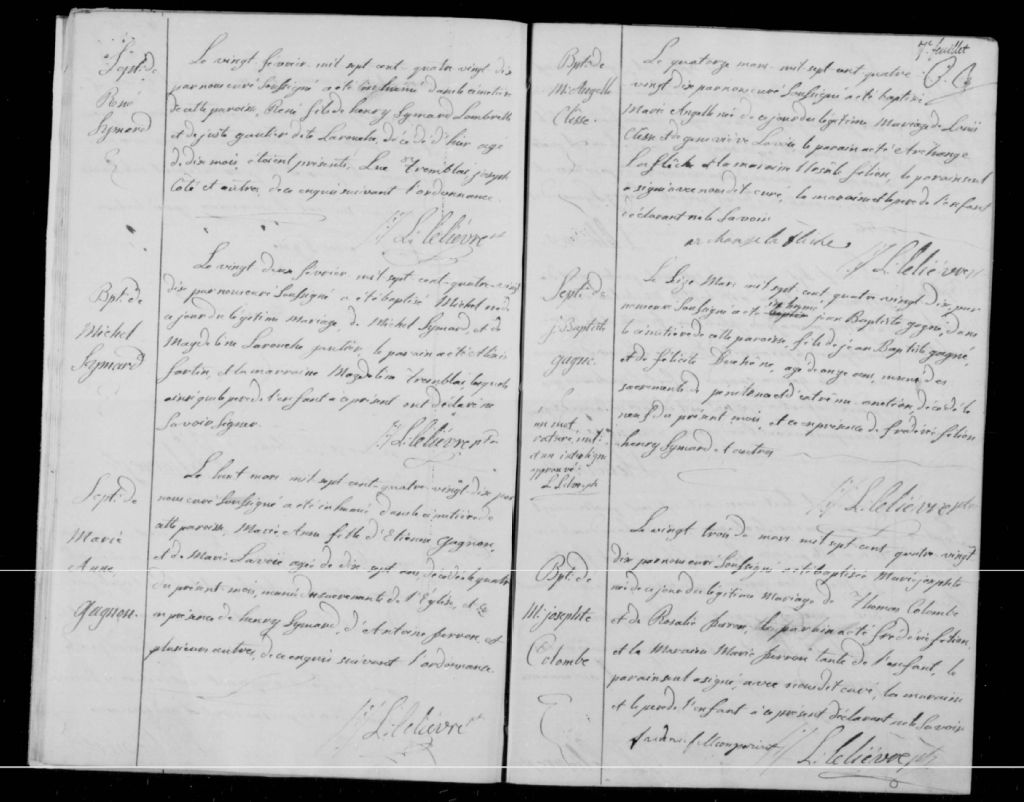 Sept. de
René
Symard
Le vingt fevrier mil sept cent quatre vingt dix
par nous curé Soussigné a eté inhumé dans le cimetiere
de cette paroisse, René fils de henry Symard Lombrette
et de judith gautier dite Larouche, décédé d'hier agé
de dix mois, étoient présents Luc Tremblai, joseph
Côté et autres, de ce enquis suivant l'ordonnance.
L. Lelièvre ptre
Bpt. de
Michel
Symard
Le vingt deux février mil sept cent quatre vingt
dix par nous curé Soussigné a été baptisé Michel né de
ce jour du légitime Mariage de Michel Symard, et de
Magdeleine Larouche gautier, le parain a été
fortin, et la marraine Magdeleine Tremblai lesquels
ainsi que le pere de l'enfant a ce présent ont déclaré ne
Savoir signer.
L. Lelièvre ptre
Sept. de
Marie
Anne
gagnon.
Le huit mars mil sept cent quatre vingt dix par
nous curé Soussigné a été inhumé dans le cimetière de
cette paroisse, Marie Anne fille d'Etienne gagnon,
et de Marie Lavoie agée de dix sept ans, décédée le quatre
du présent mois, munie des sacrements de l'Eglise, et ce
en présence de henry Symard, d'Antoine perron, et
plusieurs autres, de ce enquis suivant l'ordonnance.
L. Lelièvre ptre
7e. feuillet
Bpt. de
M. Angelle
Clesse.
Le quatorze mars mil sept cent quatre
vingt dix par nous curé Soussigné a eté baptisé
Marie Angelle né de ce jour du legitime Mariage de Louis
Clesse et de genevieve Lavoie, le parain a été Archange
La flèche et la maraine filion, le parain seul
a signé avec nous dit curé, la maraine et le pere de l'enfant
déclarant ne le Savoir
archange la fleche
L. Lelièvre ptre
Sept. de
j. Baptiste
gagné.
Le Seize Mars mil sept cent quatre vingt dix par
nous curé Soussigné a été inhumé jean Baptiste gagné, dans
le cimitière de cette paroisse, fils de jean Baptiste gagné
et de félicité Duchéne, agé de onze ans, muni des
sacrements de penitence et d'extrême onction, décédé le
neuf du présent mois, et ce en presence de frédéric filion
henry Symard et autres
un mot
raturé, nul
et un interligne
approuvé.
L. Lelievre ptr
L. Lelièvre ptre
Bpt. de
M. josephte
Colombe
Le vingt trois de mars mil sept cent quatre vingt
dix par nous curé Soussigné a été baptisée Marie josephte
née de ce jour du légitime mariage de Thomas Colombe
et de Rosalie perron, le parrain a été frédéric filion,
et la Maraine Marie perron tante de l'enfant, le
parain seul a signé, avec nous dit curé, la marraine
et le pere de l'enfant à ce présent déclarant ne le Savoir
L. Lelièvre ptr